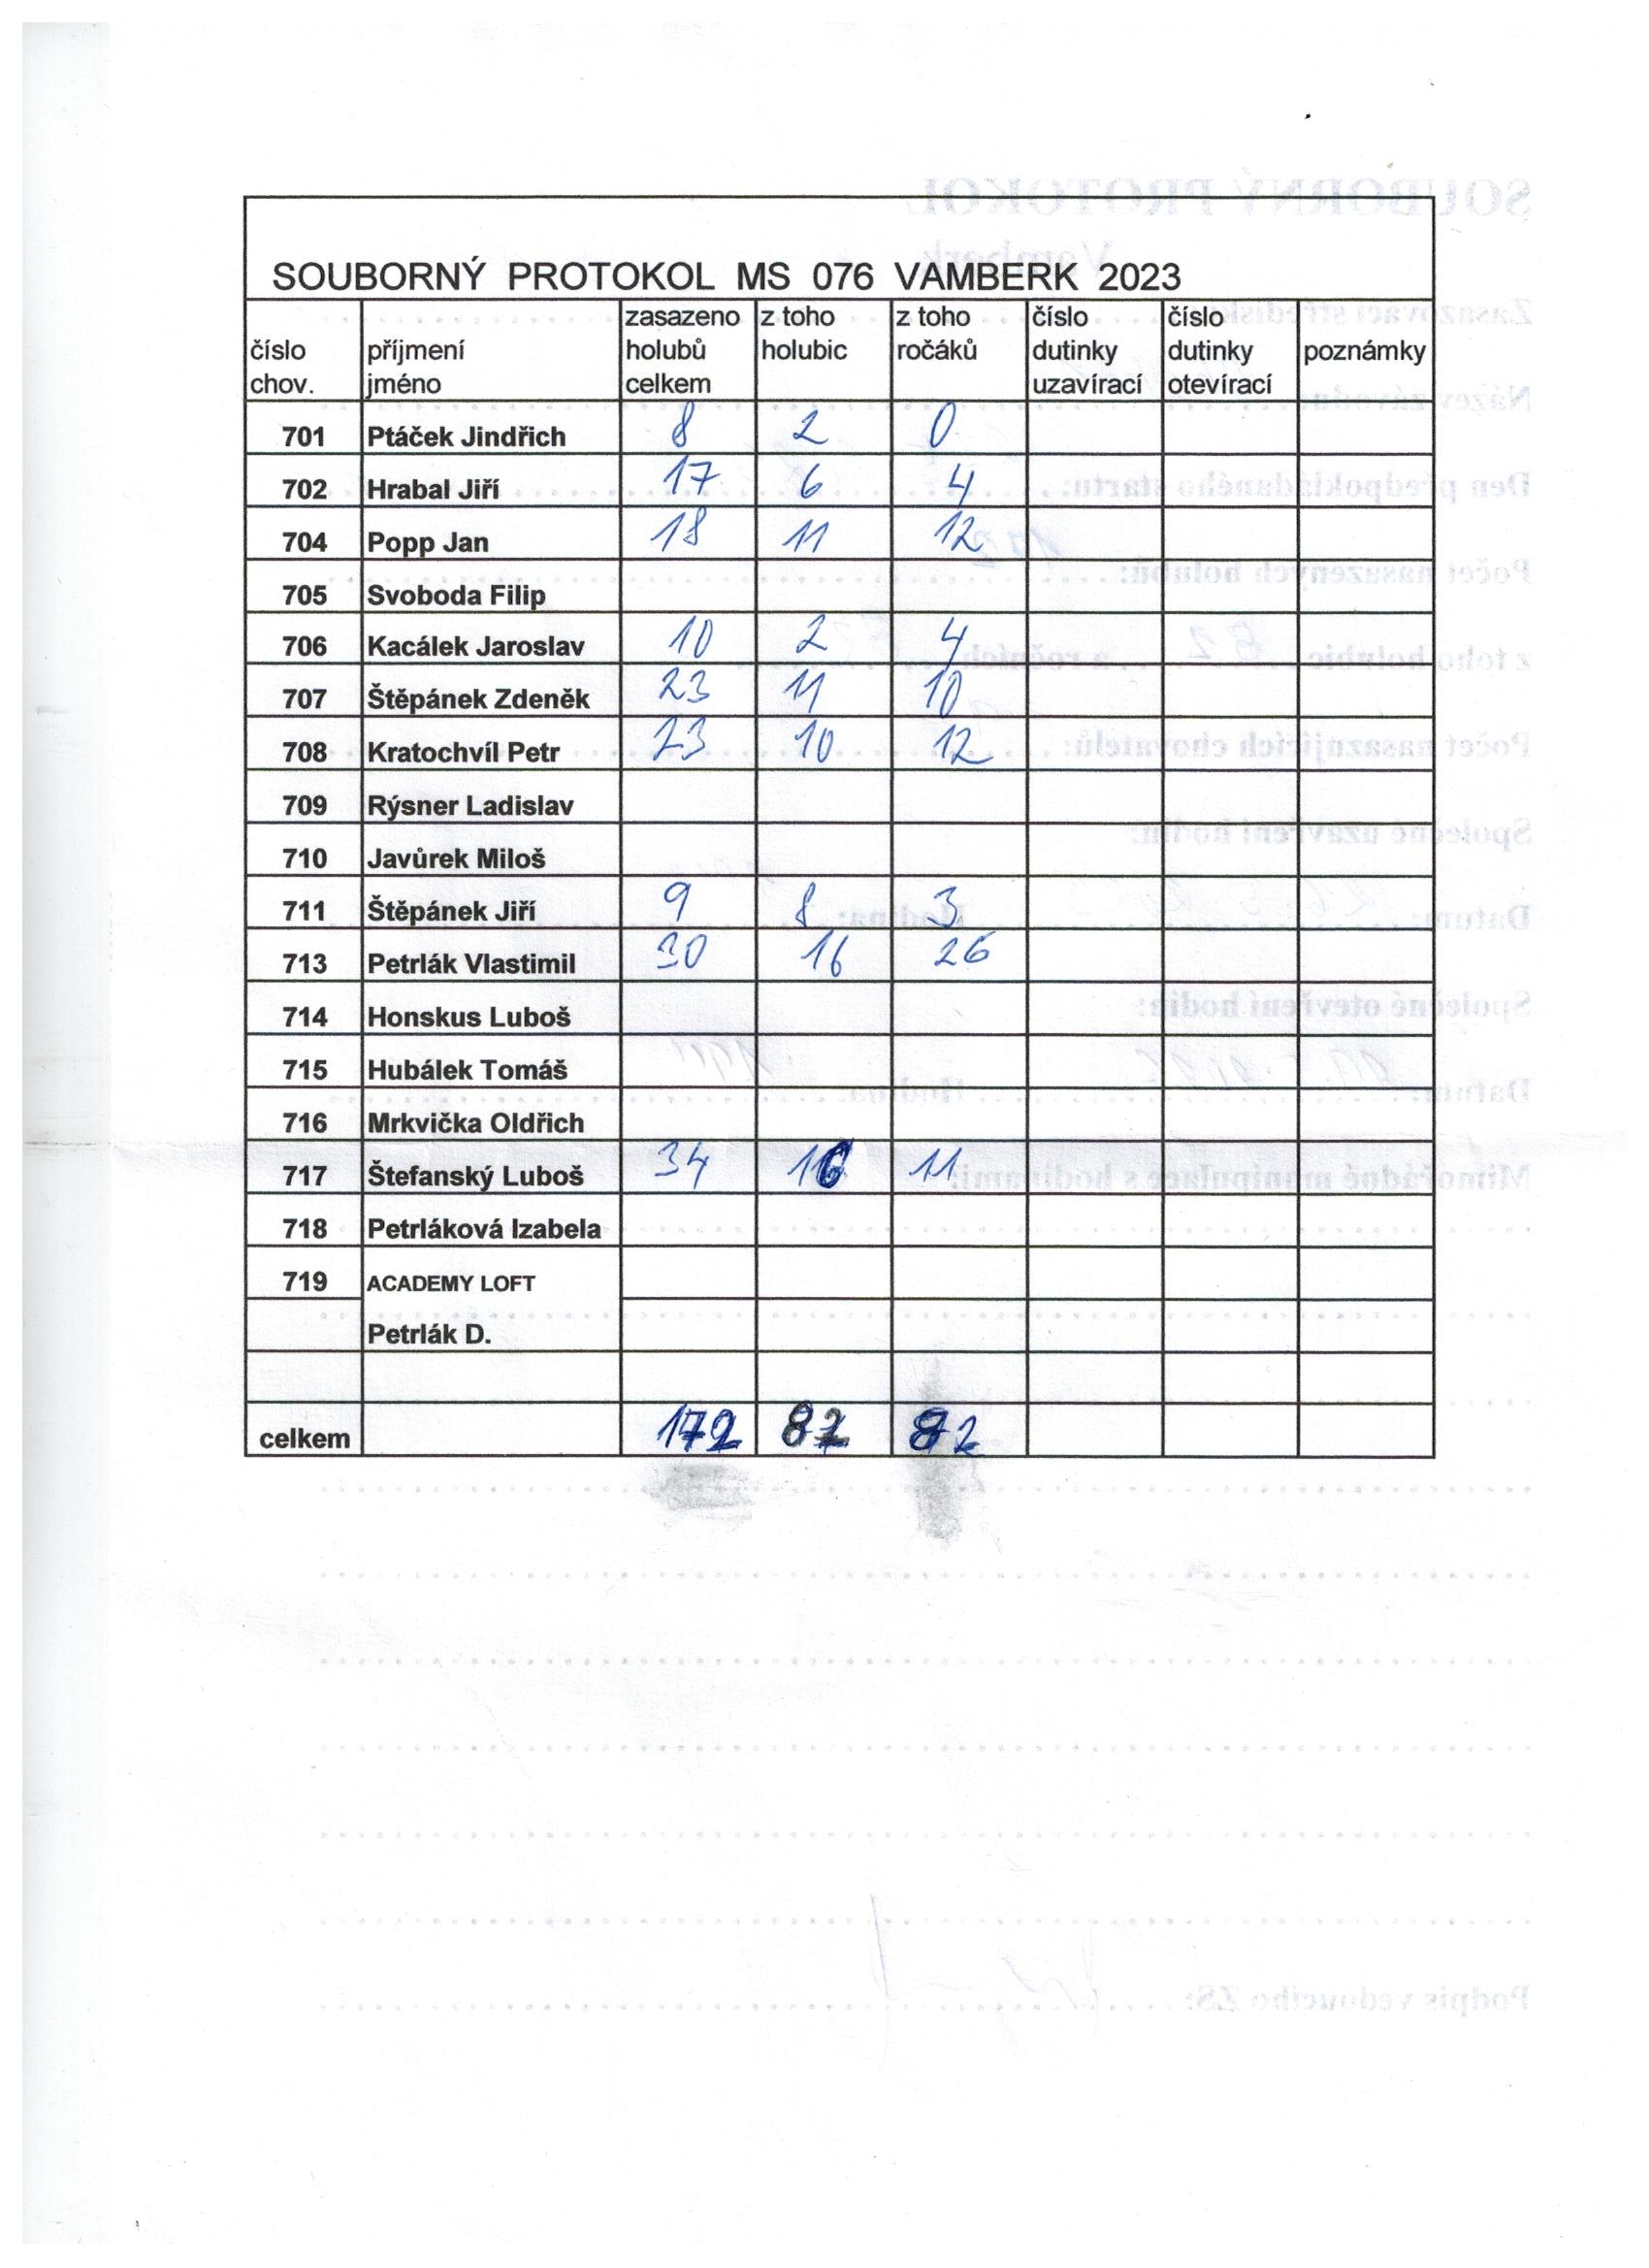 SOUBORNÝ PROTOKOL MS 076 VAMBERK 2023
číslo chov. příjmení jméno zasazeno holubů celkem z toho holubic z toho ročáků číslo dutinky uzavírací číslo dutinky otevírací poznámky
701 Ptáček Jindřich 8 2 0
702 Hrabal Jiří 17 6 4
704 Popp Jan 18 11 12
705 Svoboda Filip
706 Kacálek Jaroslav 10 2 4
707 Štěpánek Zdeněk 23 11 10
708 Kratochvíl Petr 23 10 12
709 Rýsner Ladislav
710 Javůrek Miloš
711 Štěpánek Jiří 9 8 3
713 Petrlák Vlastimil 30 16 26
714 Honskus Luboš
715 Hubálek Tomáš
716 Mrkvička Oldřich
717 Štefanský Luboš 34 16 11
718 Petrláková Izabela
719 ACADEMY LOFT
Petrlák D.
celkem 172 82 82